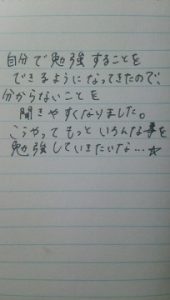 自分で勉強することを
できるようになってきたので、
分からないことを
聞きやすくなりました。
こうやってもっといろんな事を
勉強していきたいな…☆